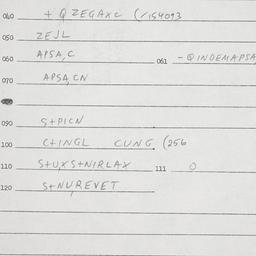 040 + QZEGAXC (/154093
050 ZEJL
060 APSA,C 061 - QINDEMAPSA
070 APSA,CN
090 S+PICN
100 C+INGL CUNG (256
110 S+U,XS+NIRLAX 111 0
120 S+NUREVET